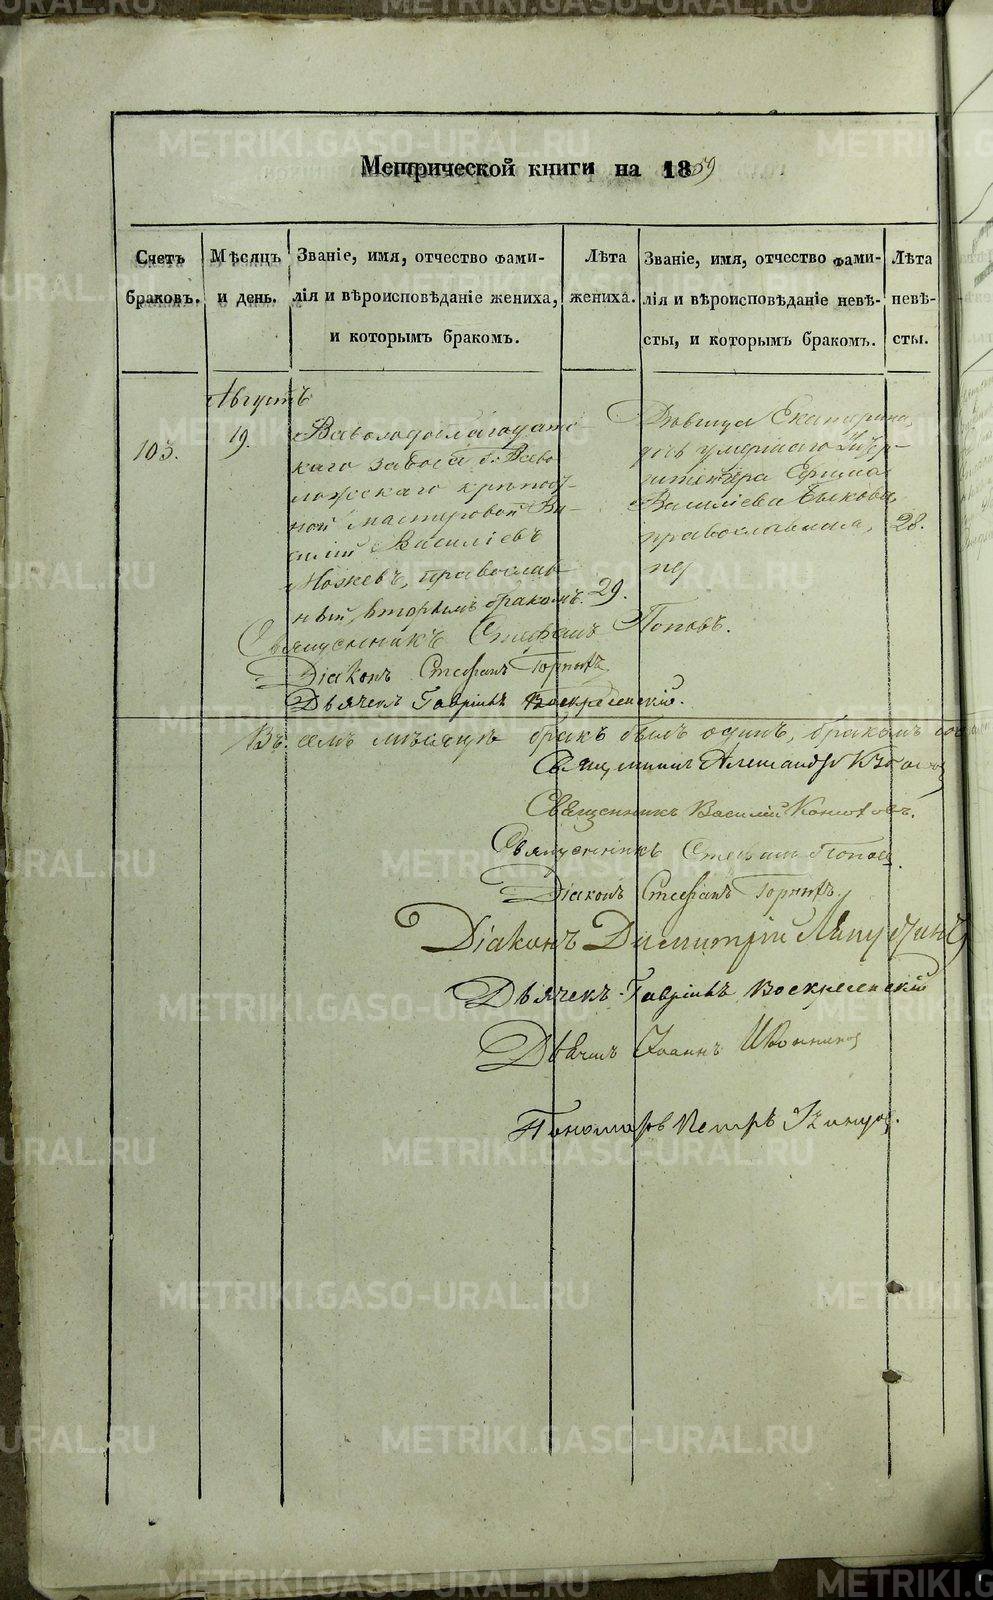 Метрической книги на 1859
Счетъ браковъ.
Мѣсяцъ и день.
Званіе, имя, отчество фами-
лія и вѣроисповѣданіе жениха,
и которымъ бракомъ.
Лѣта жениха.
Званіе, имя, отчество фами-
лія и вѣроисповѣданіе невѣ-
сты, и которымъ бракомъ.
Лѣта невѣ-
сты.
Августъ
103.
19.
каго завода г. Всево
ложскаго крѣпост-
ной мастеровой Ва-
силій Васильевъ
православ-
ный, вторымъ бракомъ.
29.
Дѣвица Екатерина,
дочь умершаго Унтер-
Ефима
Васильева Быкова,
православная,
28.
Священникъ Стефанъ Поповъ.
Діаконъ Стефанъ
Дьячекъ Гавріилъ Воскресенскій.
Въ семъ мѣсяцѣ бракъ былъ одинъ, бракомъ
Священникъ Александръ
Священникъ Василій
Священникъ Стефанъ Поповъ.
Діаконъ Стефанъ
Діаконъ Димитрій
Дьячекъ Гавріилъ Воскресенскій
Дьячекъ Іоаннъ
Пономарь Петръ
METRIKI.GASO-URAL.RU